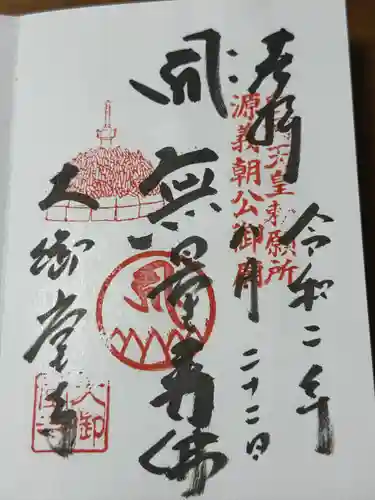 奉拝
令和二年
八月二十二日
天皇勅願所
源義朝公御開
無量寿佛
大御堂寺